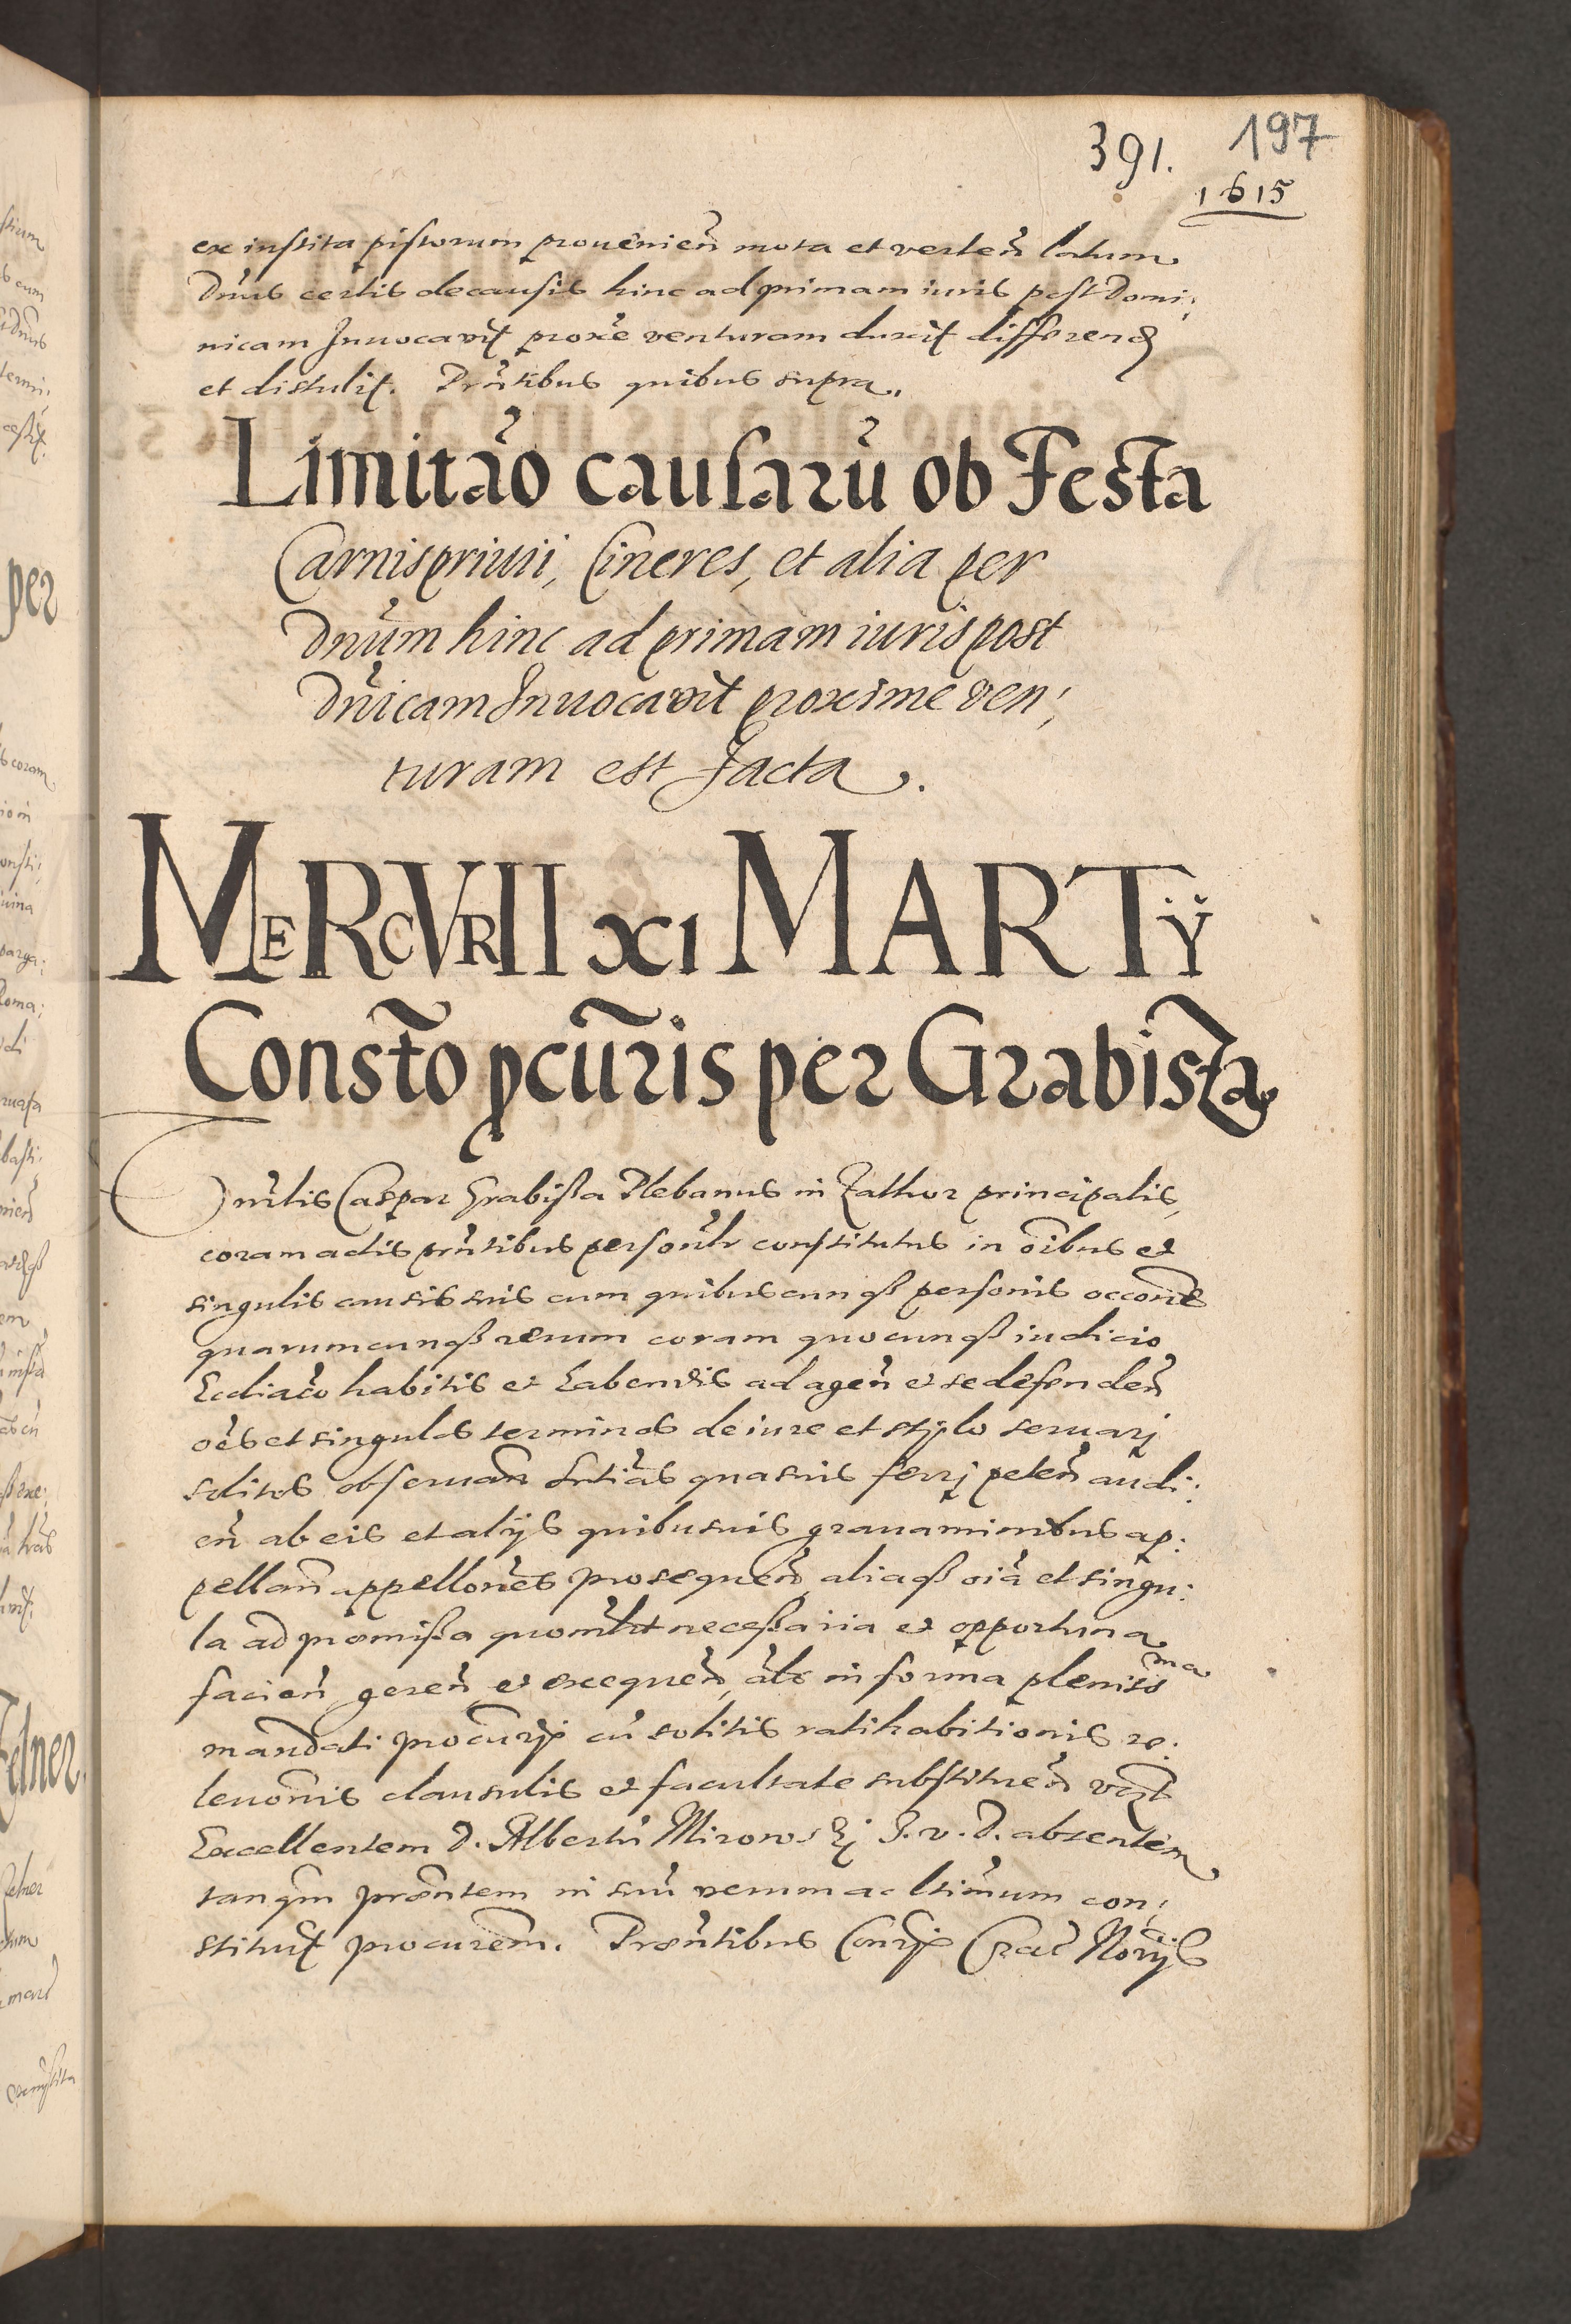 391. 197
1615
ex institа pistorum prouenien̄ mota et verten̄ latum
Dn̄us certis de causis hinc ad primam iuris post Domi:
nicam Inuocavit proxē venturam duxit differend
et distulit. Prn̄tibus quibus supra.
Limitaō causarū ob Festa
Carnispriuii, Cineres, et alia per
Dnūm hinc ad primam iuris post
Dn̄icam Inuocavit proxime ven:
turam est facta.
MERCVRII XI MARTÿ
Consto pcuris per Grabista
Hon̄lis Caspar Grabissa Plebanus in Zathor principalis,
coram actis prn̄tibus persoūlr constitutus in oībus et
singulis causis suis cum quibuscunqȝ personis occone
quarumcunqȝ rerum coram quocunqȝ iudicio
Ecclia͠co habitis et habendis ad agen̄ et se defenden̄
oēs et singulos terminos de iure et stylo seruarj
solitos obseruan̄ sn̄tias quasuis ferrj peten̄ audi:
en̄ ab eis et alijs quibusuis grauaminibus ap:
pellan̄ appellones prosequen̄ aliaqȝ oiā et singu:
la ad praemissa quomlt necessaria et opportuna
facien̄ geren̄ et exequen̄, als in forma pleniss<sup>ma</sup>
mandati procurīj cū solitis ratihabitionis re:
leuonis clausulis et facultate substituen̄
Excellentem D. Albertū Mirowskj J. V. D. absentem
tanqm praesn̄tem in suū verum ac ltimum con:
stituit procurem. Praesn̄tibus Consrij Crac Norijs